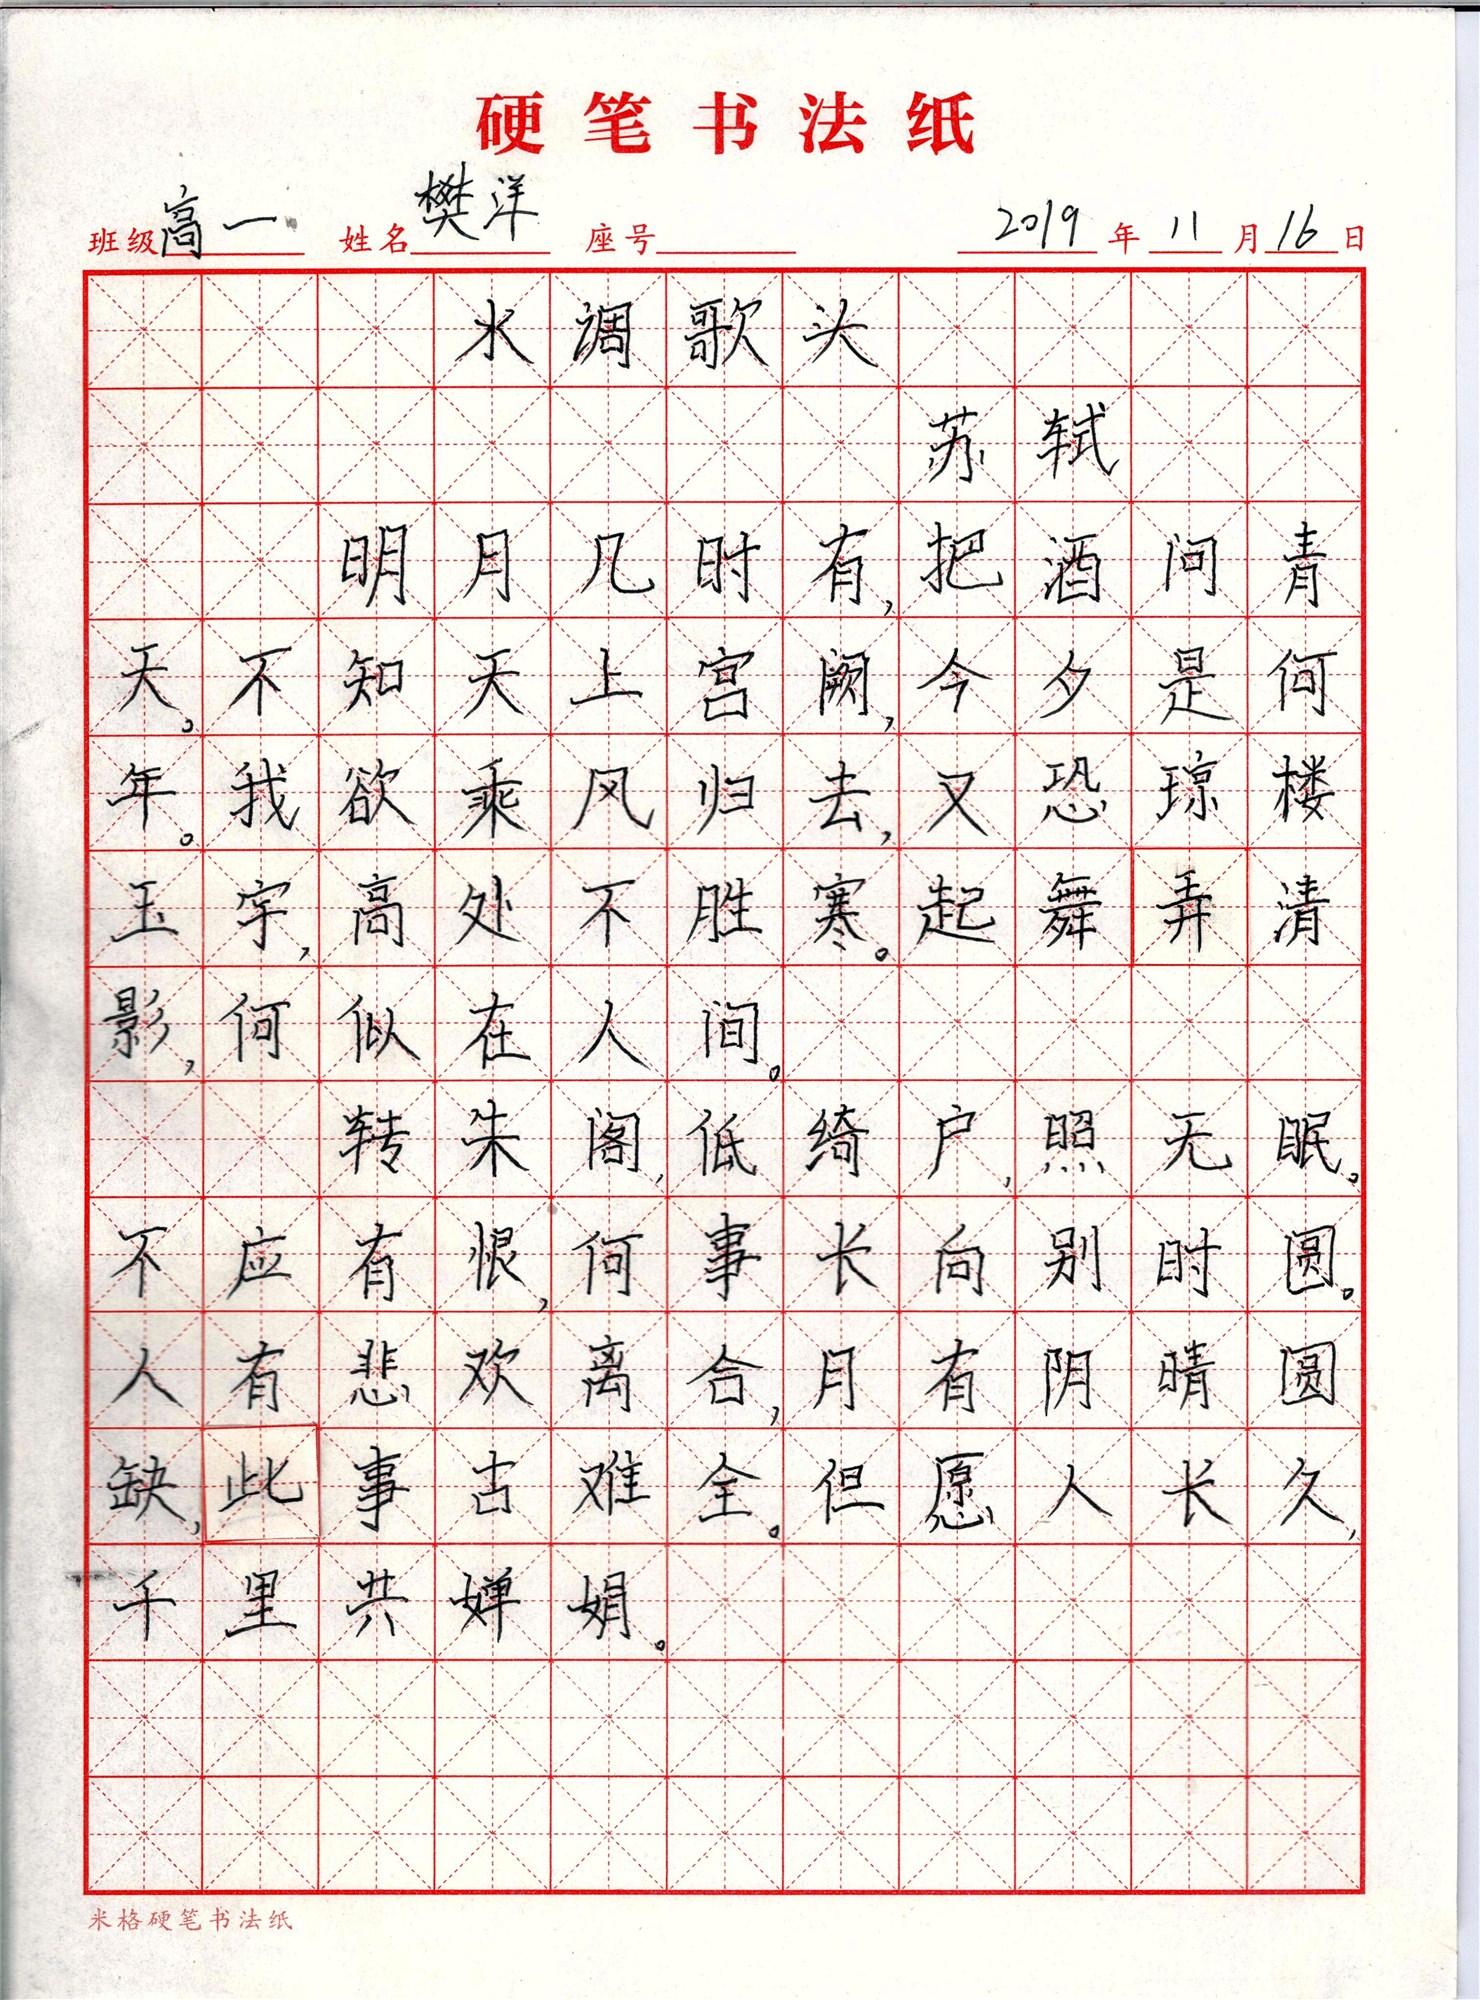 硬笔书法纸
班级 高一 姓名 樊洋 座号 2019 年 11 月 16 日
水调歌头
苏轼
明月几时有,把酒问青
天。不知天上宫阙,今夕是何
年。我欲乘风归去,又恐琼楼
玉宇,高处不胜寒。起舞弄清
影,何似在人间。
转朱阁,低绮户,照无眠。
不应有恨,何事长向别时圆。
人有悲欢离合,月有阴晴圆
缺,此事古难全。但愿人长久,
千里共婵娟。
米格硬笔书法纸